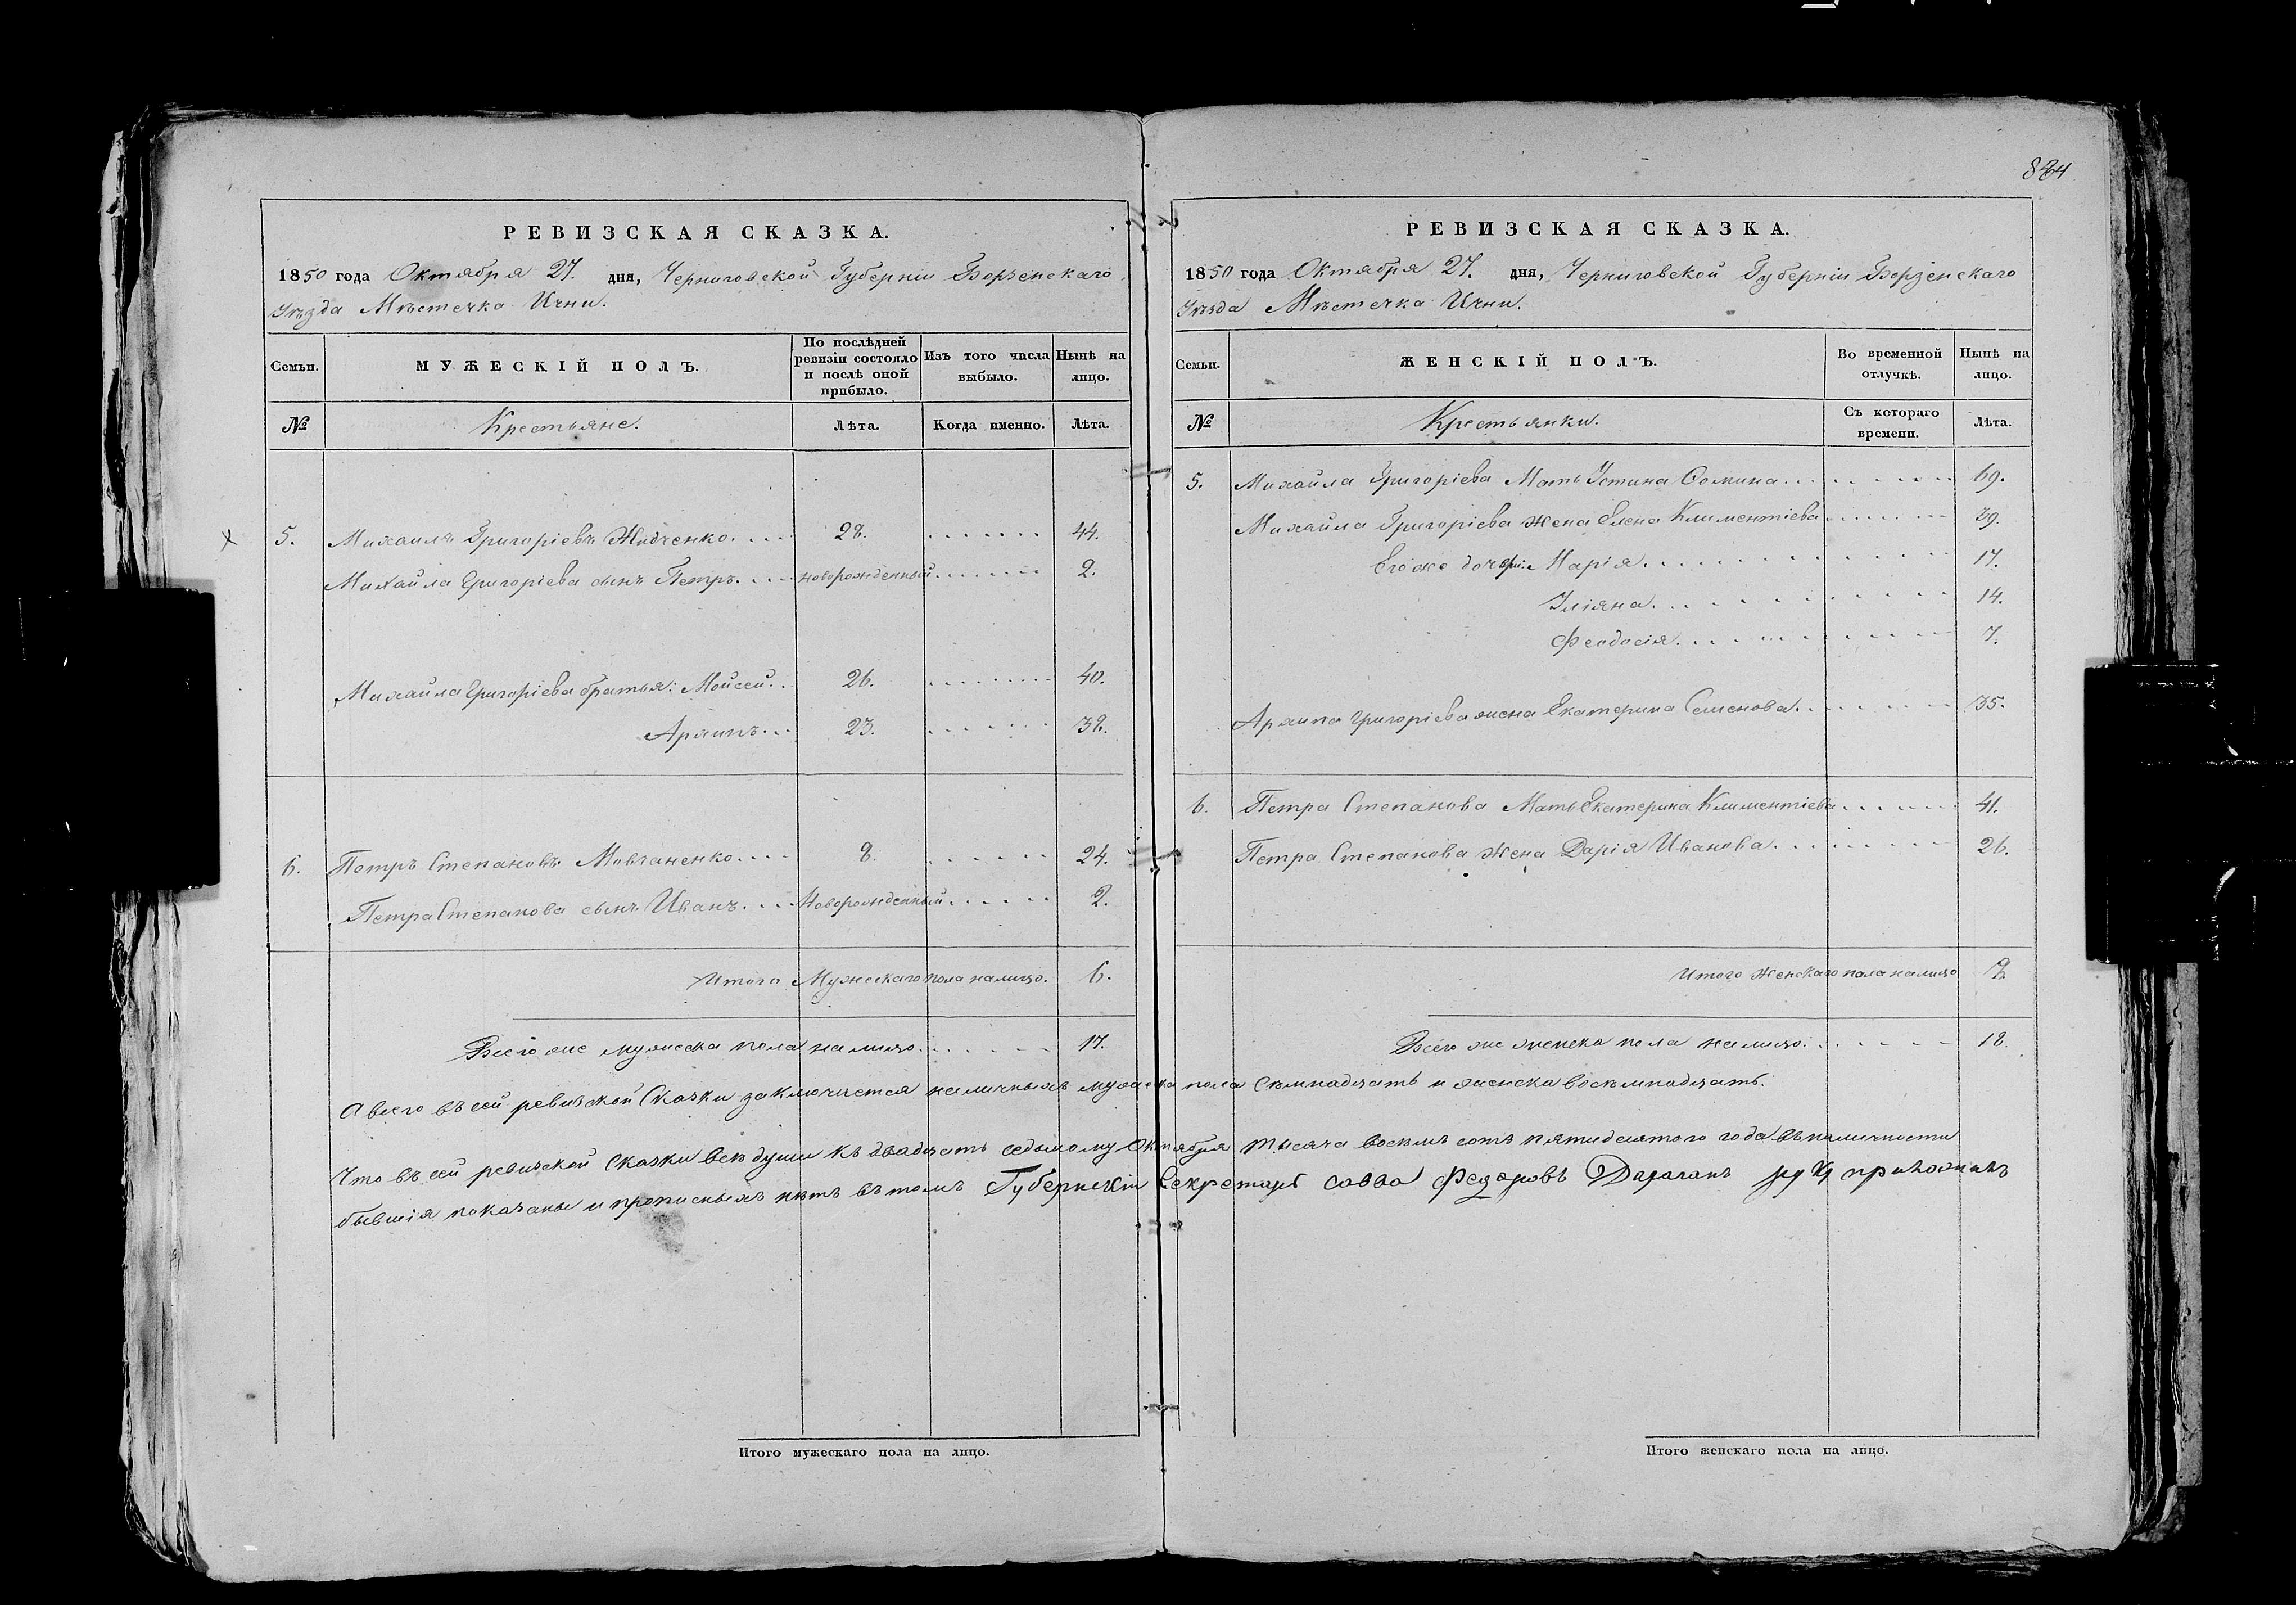 884
РЕВИЗСКАЯ СКАЗКА.
1850 года Октября 27. дня, Черниговской Губерніи Борзенскаго
Уѣзда Мѣстечка Ични.
Семьи.
МУЖЕСКІЙ ПОЛЪ.
По послѣдней ревизіи состояло и послѣ оной прибыло.
Изъ того числа выбыло.
Нынѣ на лицо.
№ Крестьяне. Лѣта. Когда именно. Лѣта.
5. Михаилъ Григоріевъ .... 28. ....... 44.
Михайла Григоріева сынъ Петръ.... новорожденный....... 2.
Михайла Григоріева братья: Мойсей.. 26. ........ 40.
Архипъ... 23. ...... 38.
6. Петръ Степановъ Мовчаненко.... 8. ...... 24.
Петра Степанова сынъ Иванъ.... Новорожденный...... 2.
Итого Мужескаго пола налицо. 6.
Всего же мужеска пола налицо....... 17.
РЕВИЗСКАЯ СКАЗКА.
1850 года Октября 27. дня, Черниговской Губерніи Борзенскаго
Уѣзда Мѣстечка Ични.
Семьи.
ЖЕНСКІЙ ПОЛЪ.
Во временной отлучкѣ.
Нынѣ на лицо.
№ Крестьянки. Съ котораго времени. Лѣта.
5. Михайла Григоріева Мать Устина Фомина......... 69.
Михайла Григоріева жена Елена Климентіева....... 39.
Его же дочери: Марія............ 17.
Уліяна............ 14.
Феодосія............ 7.
Архипа Григоріева жена Екатерина Семенова........ 35.
6. Петра Степанова Мать Екатерина Климентіева...... 41.
Петра Степанова Жена Дарія Иванова......... 26.
Итого Женскаго пола налицо 8.
Всего же женска пола налицо....... 18.
А всего въ сей ревизской Сказки заключается наличныхъ мужеска пола Семнадцать и женска восемнадцать.
Что въ сей ревизской Сказки всѣ души къ двадцать седьмому Октября тысяча восемь сотъ пятидесятого года въ наличности
бывшія показаны и прописныхъ нѣтъ въ томъ Губернскій Секретарь Савва Федоровъ Дараганъ руку приложилъ
Итого мужескаго пола на лицо.
Итого женскаго пола на лицо.